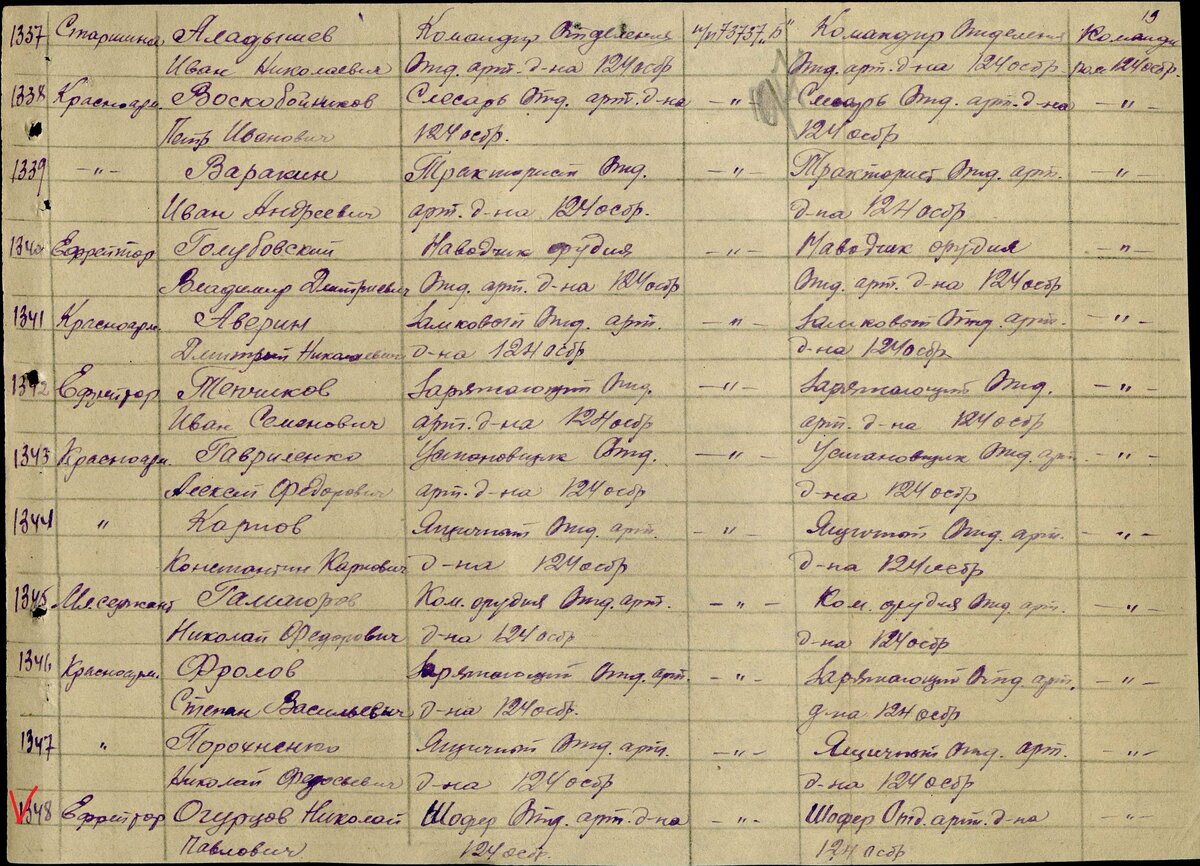 19
1337 Старшина Аладышев Командир Отделения п/п 73737 „Б" Командир Отделения Команди
Иван Николаевич Отд. арт. д-на 124 осбр Отд. арт. д-на 124 осбр. ром 124 осбр.
1338 Красноарм. Воскобойников Слесарь Отд. арт. д-на -"- Слесарь Отд. арт. д-на -"-
Петр Иванович 124 осбр. 124 осбр.
1339 -"- Варакин Тракторист Отд. -"- Тракторист Отд. арт. -"-
Иван Андреевич арт. д-на 124 осбр. д-на 124 осбр
1340 Ефрейтор Голубовский Наводчик орудия -"- Наводчик орудия -"-
Владимир Дмитриевич Отд. арт. д-на 124 осбр Отд. арт. д-на 124 осбр
1341 Красноарм. Аверин Замковый Отд. арт. -"- Замковый Отд. арт. -"-
Дмитрий Николаевич д-на 124 осбр д-на 124 осбр.
1342 Ефрейтор Тенчиков Заряжающий Отд. -"- Заряжающий Отд. -"-
Иван Семенович арт. д-на 124 осбр арт. д-на 124 осбр
1343 Красноарм. Гавриленко Установщик Отд. -"- Установщик Отд. арт -"-
Алексей Федорович арт. д-на 124 осбр д-на 124 осбр
1344 " Карпов Ящичный Отд. арт. -"- Ящичный Отд. арт. -"-
Константин Карпович д-на 124 осбр д-на 124 осбр
1345 Мл.сержант Ком. орудия Отд. арт. -"- Ком. орудия Отд. арт. -"-
Николай Федорович д-на 124 осбр д-на 124 осбр
1346 Красноарм. Фролов Заряжающий Отд. арт. -"- Заряжающий Отд арт. -"-
Степан Васильевич д-на 124 осбр. д-на 124 осбр
1347 " Порохненко Ящичный Отд. арт. -"- Ящичный Отд. арт. -"-
Николай Федосьевич д-на 124 осбр д-на 124 осбр
1348 Ефрейтор Огурцов Николай Шофер Отд. арт. д-на -"- Шофер Отд. арт. д-на -"-
Павлович 124 осбр. 124 осбр.